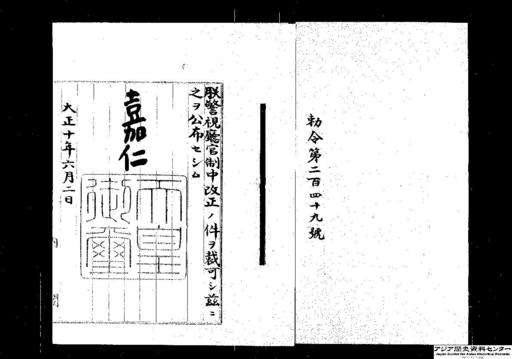 勅令第二百四十九號
朕警視廳官制中改正ノ件ヲ裁可シ茲ニ
之ヲ公布セシム
嘉仁
天皇
御璽
大正十年六月二日
内閣
アジア歴史資料センター
Japan Center for Asian Historical Records